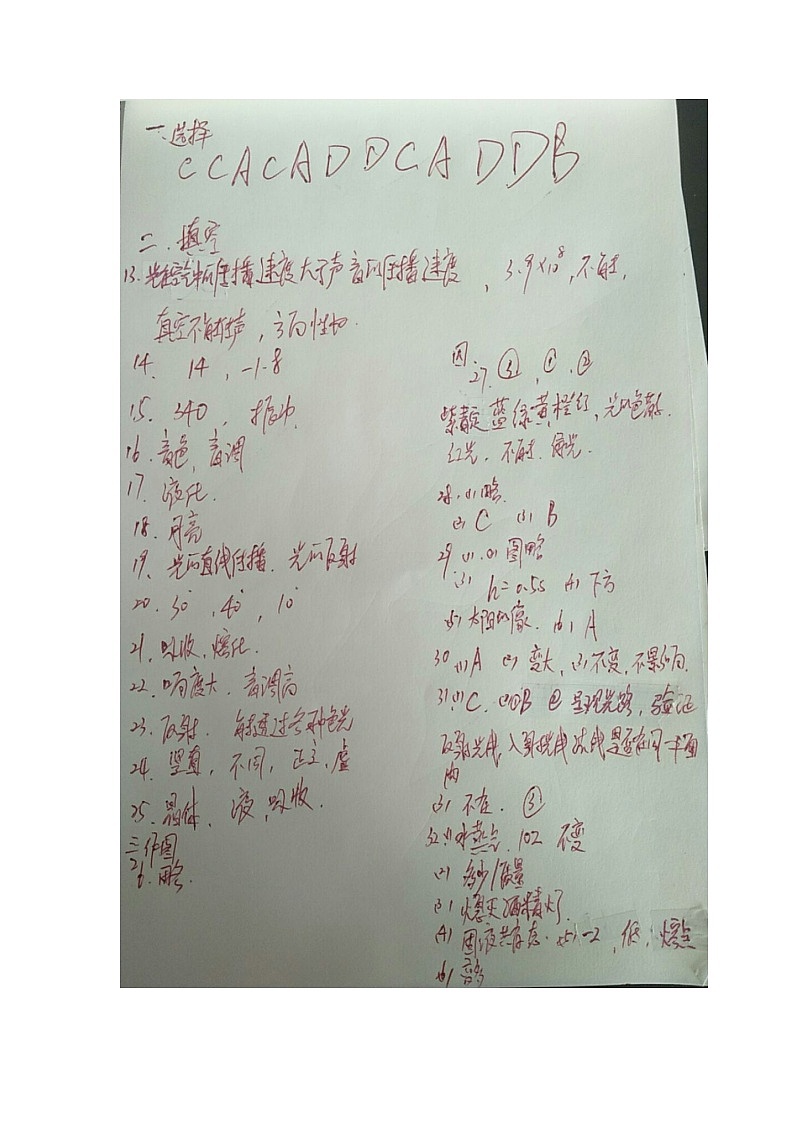 一、选择
C C A C A D D C A D D B
二、填空
13. 光在空气中的传播速度大于声音的传播速度，3.9×10⁸，不能，
真空不能传声，方向性好.
14. 14，-1.8
15. 340，振动.
16. 音色，音调
17. 液化.
18. 月亮
19. 光的直线传播. 光的反射
20. 30°，40°，10°
21. 吸收，熔化.
22. 响度大. 音调高
23. 反射. 能透过各种色光
24. 竖直，不同，正立，虚
25. 晶体. 液，吸收.
三、作图
26. 略.
四.
27. ③，①，②
紫靛蓝绿黄橙红，光的色散.
红光. 不能. 绿光.
28. (1) 略.
(2) C (3) B
29. (1). (2) 图略
(3) h=0.5s (4) 下方
(5) 太阳的像. (6) A
30 (1) A (2) 变大，(3) 不变，不影响.
31. (1) C. (2) ① B ② 呈现光路，验证
反射光线，入射光线 法线是否在同一平面
内
(3) 不在. ③
32. (1) 水蒸气. 102 不变
(2) 多少/质量
(3) 熄灭酒精灯.
(4) 固液共存态. (5) -2，低，熔点
(6)